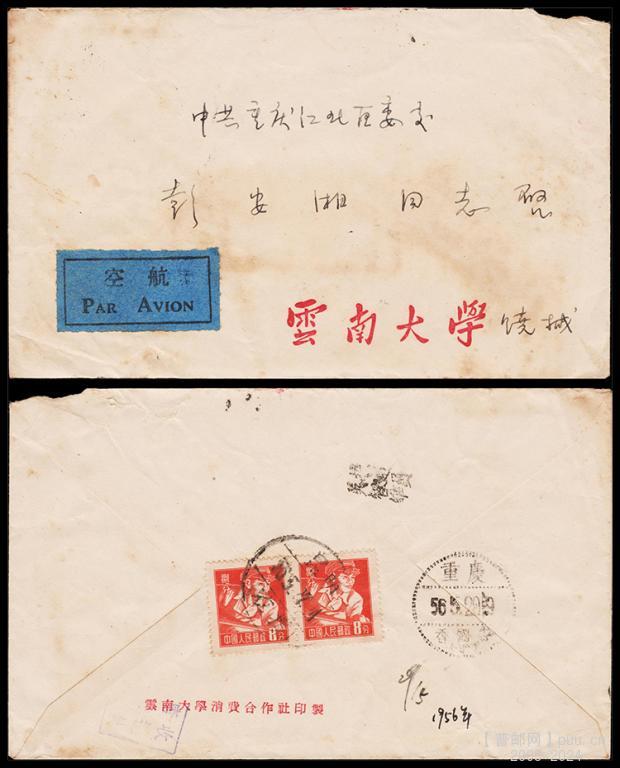 中共重庆江北区委交
彭安湘同志啓
空航
PAR AVION
雲南大學 饶械
捌分
中國人民郵政 8分
捌分
中國人民郵政 8分
重慶
56.5.29.
29/5
1956年
雲南大學消費合作社印製
【普邮网】puu.cn
2008-2024